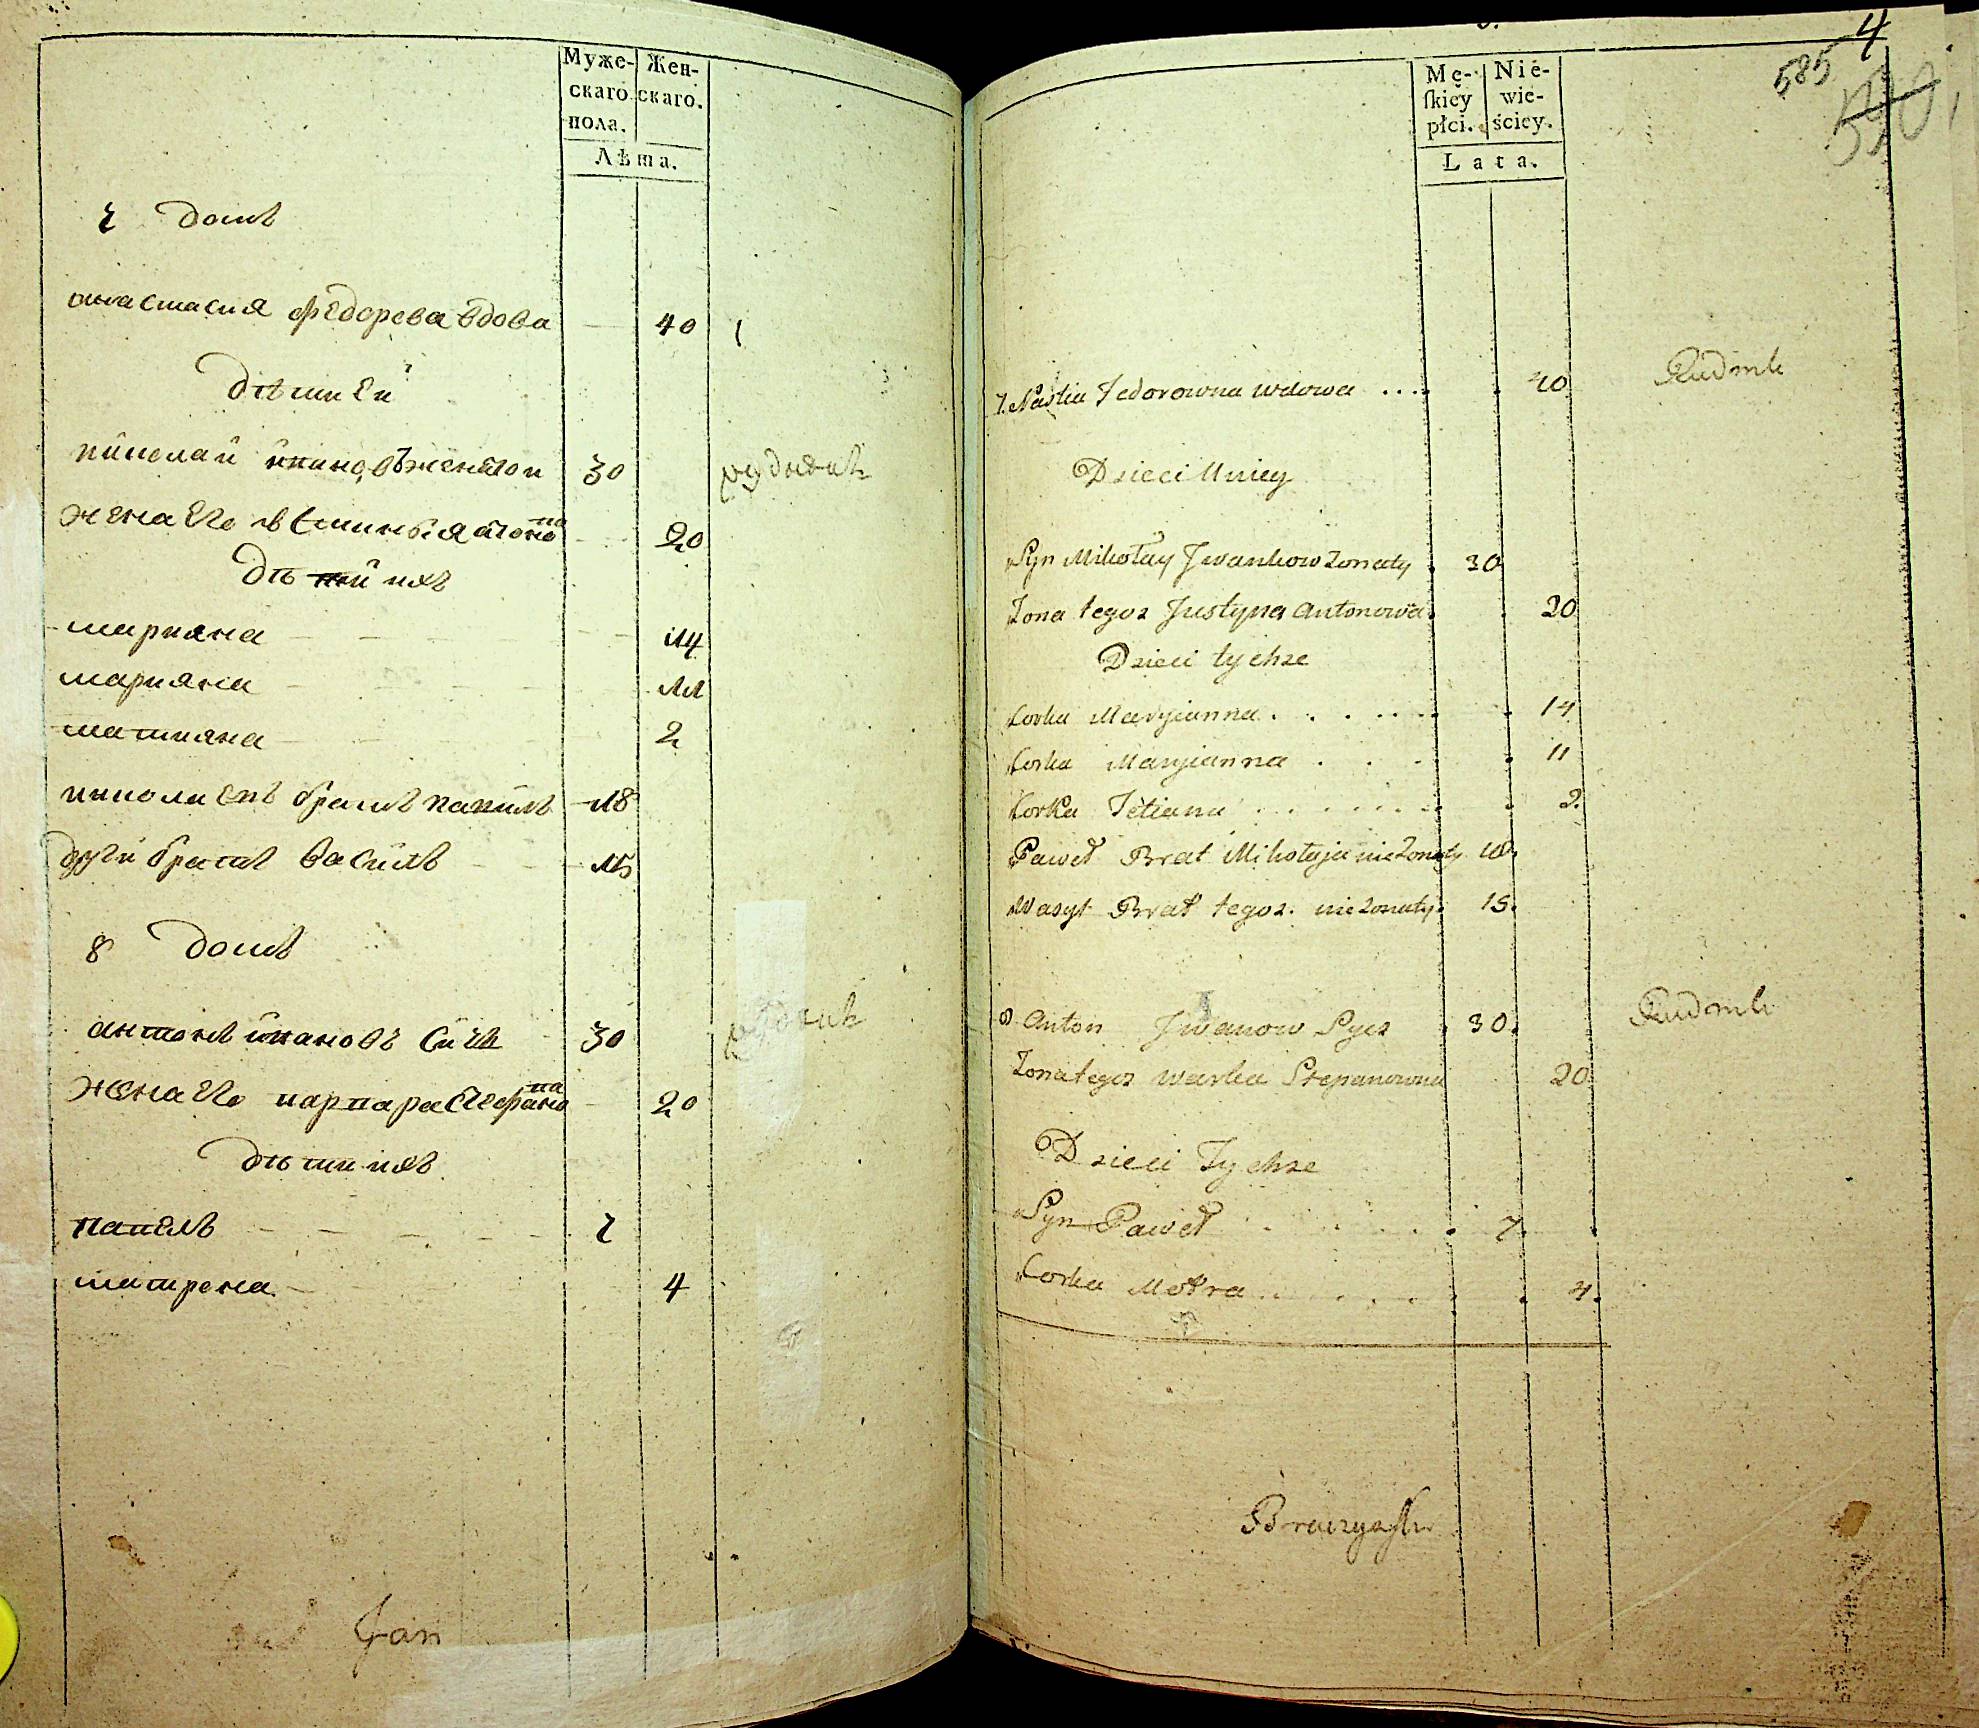 Муже-
скаго
пола.
Жен-
скаго.
Лѣта.
7 домъ
анастасия федорева вдова 40
дѣти Ей
николаи ивановъ женатои 30
жена Его 20
дѣти ихъ
марияна 14
марияна 11
татияна 2
николаевъ братъ павилъ 18
други братъ василь 15
8 домъ
антонъ ивановъ Сичъ 30
жена Его варвара Стефанова 20
дѣти ихъ
павелъ 7
матрена 4
Jan
4
585
590
Mę-
skiey
płci.
Nie-
wie-
ściey.
Lata.
7. Nastia Fedorowna wdowa 40
Dzieci Uniey
Syn Mikołay Jwankow Zonaty 30
Zona tegoz Justyna Antonowa 20
Dzieci tychze
Corka Maryianna 14
Corka Maryianna 11
Corka Tetiana 2.
Paweł Brat Mikołaja nie Zonaty 18.
Wasyl Brat tegoz. nie Zonaty 15.
8 Anton Jwanow Sycz 30.
Zona tegoz Warka Stepanowna 20
Dzieci Tychze
Syn Paweł 7.
Corka Motra 4.